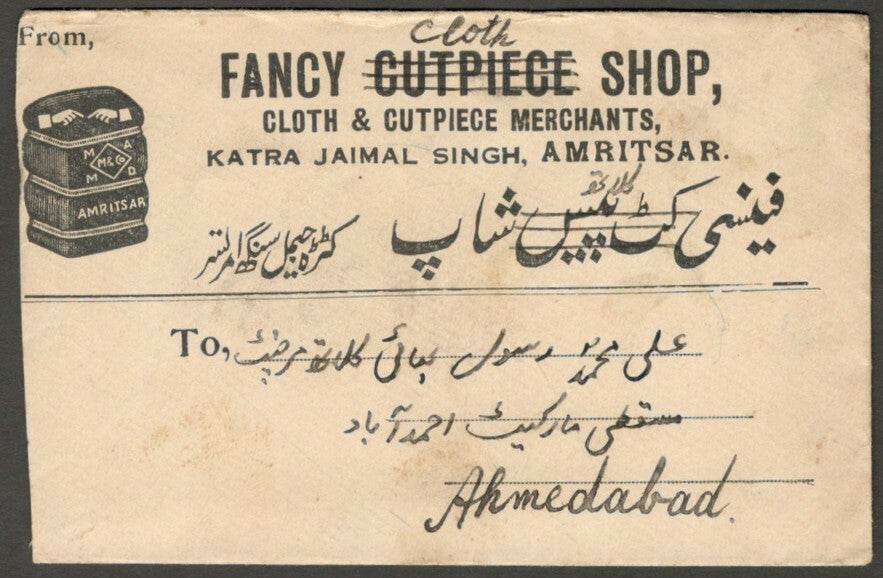 From,
Cloth
FANCY CUTPIECE SHOP,
CLOTH & CUTPIECE MERCHANTS,
KATRA JAIMAL SINGH, AMRITSAR.
M A
M & Co
M D.
AMRITSAR
کلاتھ
فینسی کٹ پیس شاپ
کٹڑہ جیمل سنگھ امرتسر
To, علی محمد رسول بھائی کلاتھ مرچنٹ
مسقطی مارکیٹ احمد آباد
Ahmedabad.